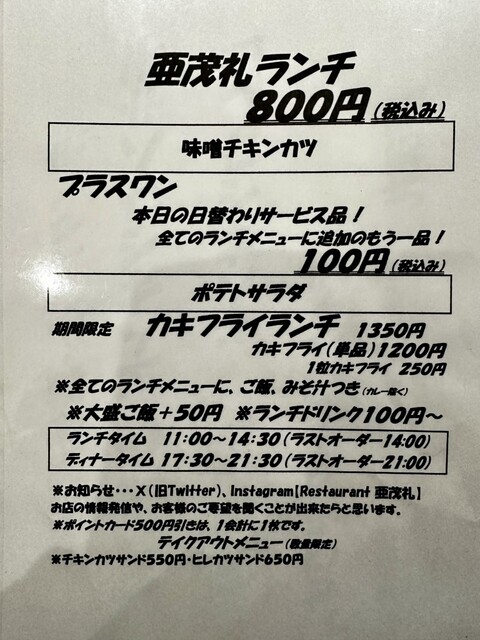 亜茂礼ランチ
800円(税込み)
味噌チキンカツ
プラスワン
本日の日替わりサービス品!
全てのランチメニューに追加のもう一品!
100円(税込み)
ポテトサラダ
期間限定 カキフライランチ 1350円
カキフライ(単品)1200円
1粒カキフライ 250円
※全てのランチメニューに、ご飯、みそ汁つき(カレー除く)
※大盛ご飯+50円 ※ランチドリンク100円~
ランチタイム 11:00~14:30(ラストオーダー14:00)
ディナータイム 17:30~21:30(ラストオーダー21:00)
※お知らせ・・・X(旧Twitter)、Instagram【Restaurant 亜茂礼】
お店の情報発信や、お客様のご要望を聞くことが出来たらと思います。
※ポイントカード500円引きは、1会計に1枚です。
テイクアウトメニュー(数量限定)
※チキンカツサンド550円・ヒレカツサンド650円